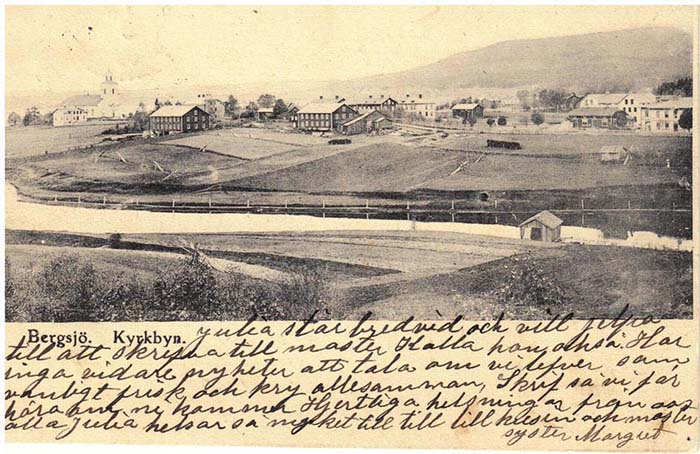 Bergsjö. Kyrkbyn.
Julia står bredvid och vill jelpa
till att skrifva till moster Kalla hon också. Har
inga vidare nyheter att tala om vi lefver som
vanligt frisk och kry allesamman, Skrif så vi får
höra om ni kommer Hjertliga helsningar från oss
alla Julia helsar så mycket till till lill kusin och moster
syster Margret